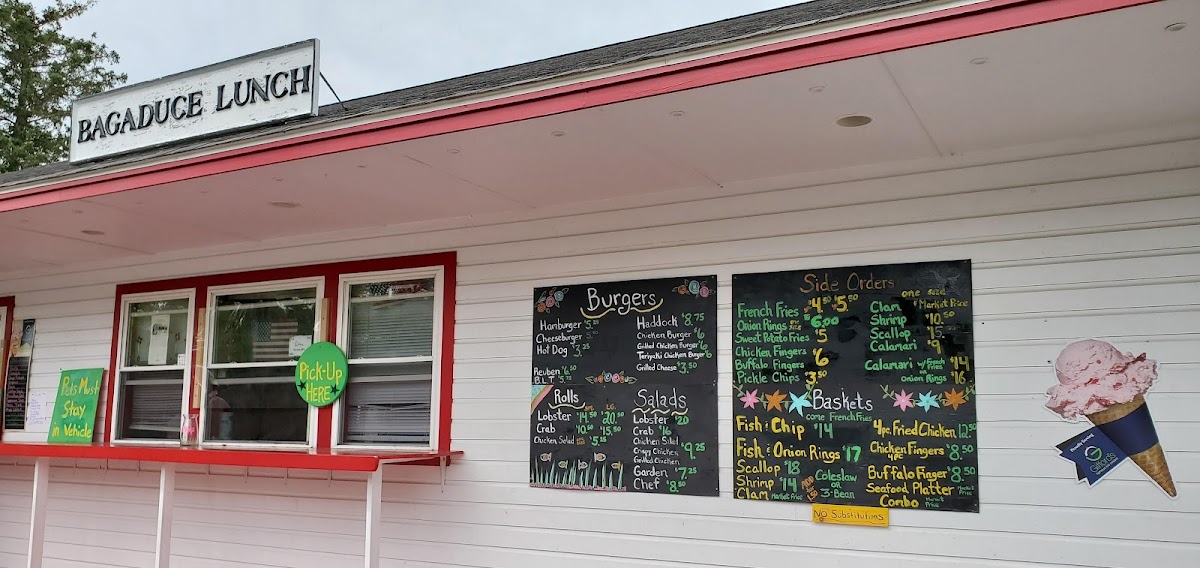 BAGADUCE LUNCH
Pets Must
Stay
in Vehicle
Pick-Up
HERE
Burgers
Hamburger $5.25
Cheeseburger
Hot Dog $3.25
Reuben $6.50
B.L.T $5.75
Haddock $8.75
Chicken Burger $6
Grilled Chicken Burger $6
Teriyaki Chicken Burger $6
Grilled Cheese $3.50
Rolls
Lobster $14.50 $20.50
Crab $10.50 $15.50
Chicken Salad $5.25
Salads
Lobster $20
Crab $16
Chicken Salad
Crispy Chicken
Grilled Chicken
$9.25
Garden $7.25
Chef $8.50
Side Orders
French Fries $4.50 $5.50
Onion Rings one size $6.00
Sweet Potato Fries $5
Chicken Fingers $6
Buffalo Fingers
Pickle Chips $3.50
one size
Clam Market Price
Shrimp $10.50
Scallop $15
Calamari $9
Calamari w/ French Fries $14
or
Onion Rings $16
Baskets
come French Fries
Fish & Chip $14
Fish & Onion Rings $17
Scallop $18
Shrimp $14
Clam Market Price
Coleslaw
OR
3-Bean
4pc. Fried Chicken 12.50
Chicken Fingers $8.50
4pc
Buffalo Finger $8.50
Seafood Platter Market Price
Combo Market Price
No Substitutions
Proudly Serving
Gifford's